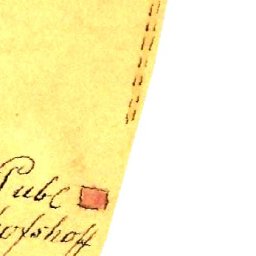 Publ
ofshoff